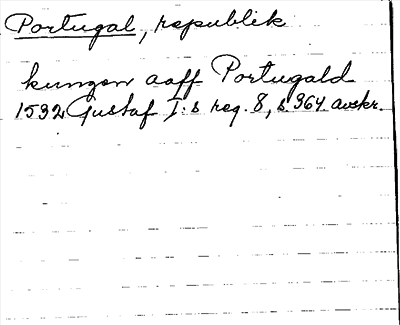 Portugal, republik
kungen aaff Portugald
1532 Gustaf I:s reg. 8, s 364 avskr.